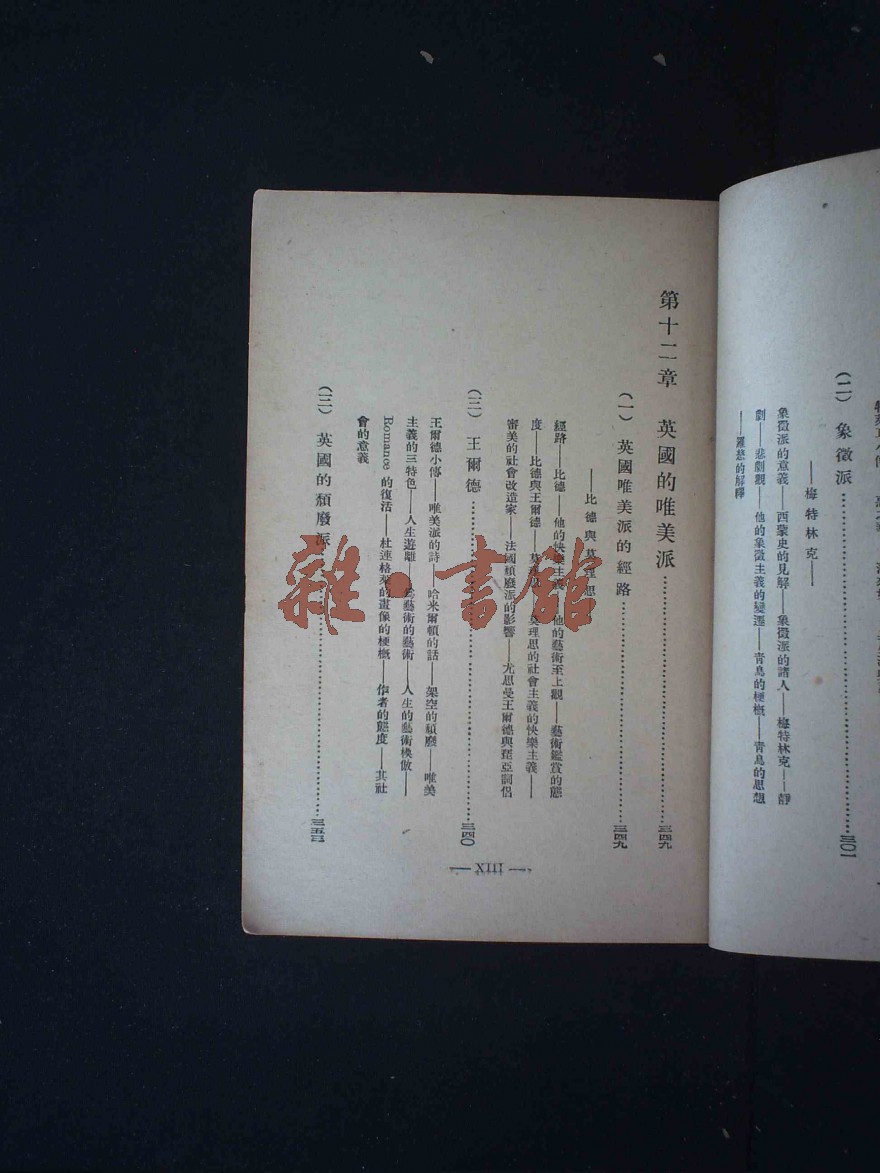 (二) 象徵派……三〇一
——梅特林克——
象徵派的意義——西蒙史的見解——象徵派的諸人——梅特林克——靜
劇——悲劇觀——他的象徵主義的變遷——青鳥的梗概——青鳥的思想
——羅慈的解釋
第十二章 英國的唯美派……三四九
(一) 英國唯美派的經路……三四九
——比德與莫理思
經路——比德——他的快樂主義——他的藝術至上觀——藝術鑑賞的態
度——比德與王爾德——莫理思——莫理思的社會主義的快樂主義——
審美的社會改造家——法國頹廢派的影響——尤思曼王爾德與琵亞詞侶
(二) 王爾德……三四〇
王爾德小傳——唯美派的詩——哈米爾頓的話——架空的頹廢——唯美
主義的三特色——人生遊離——藝術的藝術——人生的藝術模倣——
Romance 的復活——杜連格萊的畫像的梗概——作者的態度——其社
會的意義
(三) 英國的頹廢派……三五三
— XIII —
雜·書館